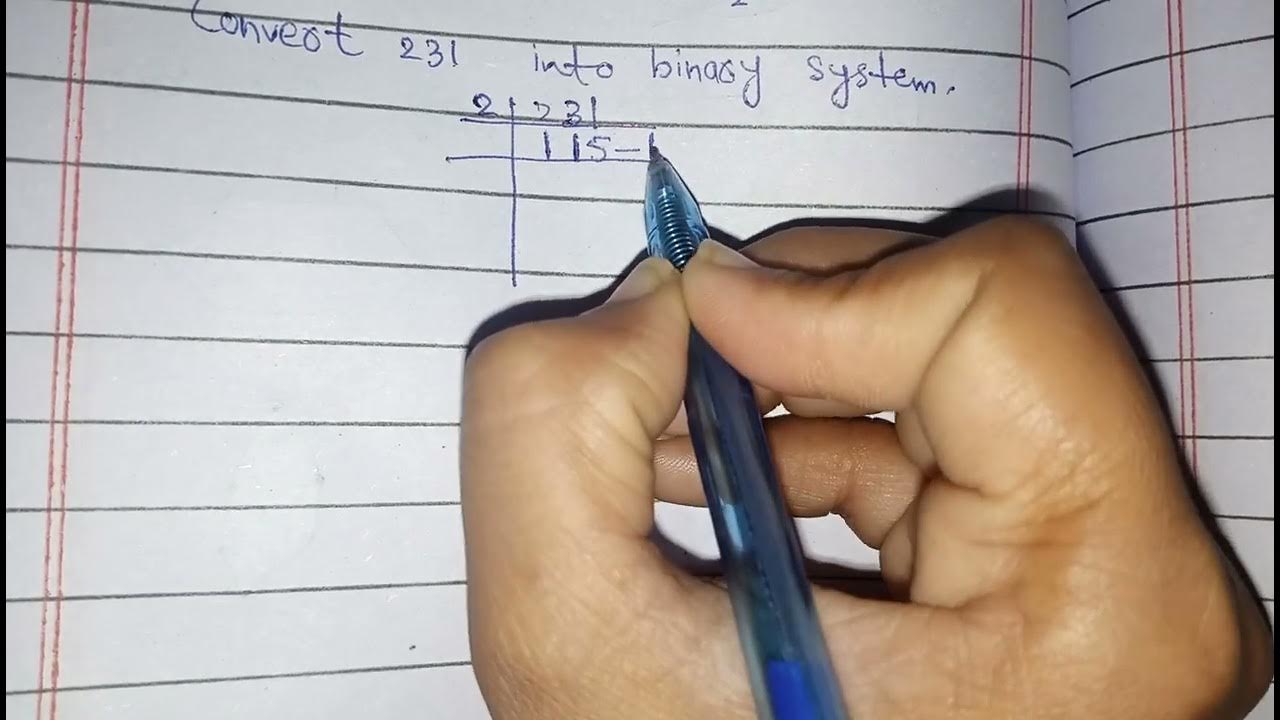 2
Convert 231 into binary system.
2 231
115-1